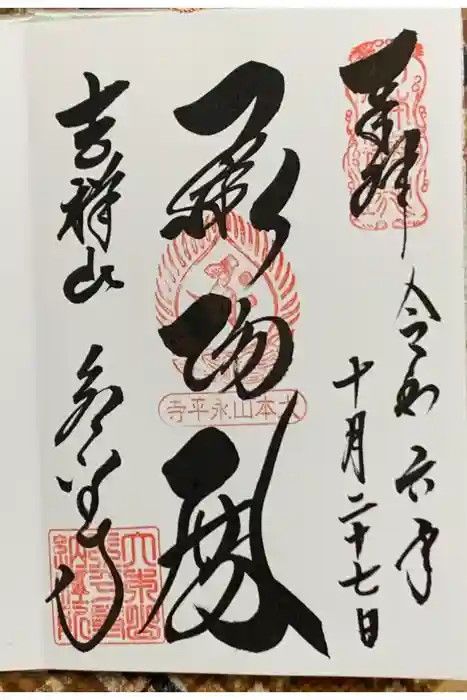 奉拝
令和六年
十月二十七日
承陽殿
大本山永平寺
吉祥山 永平寺